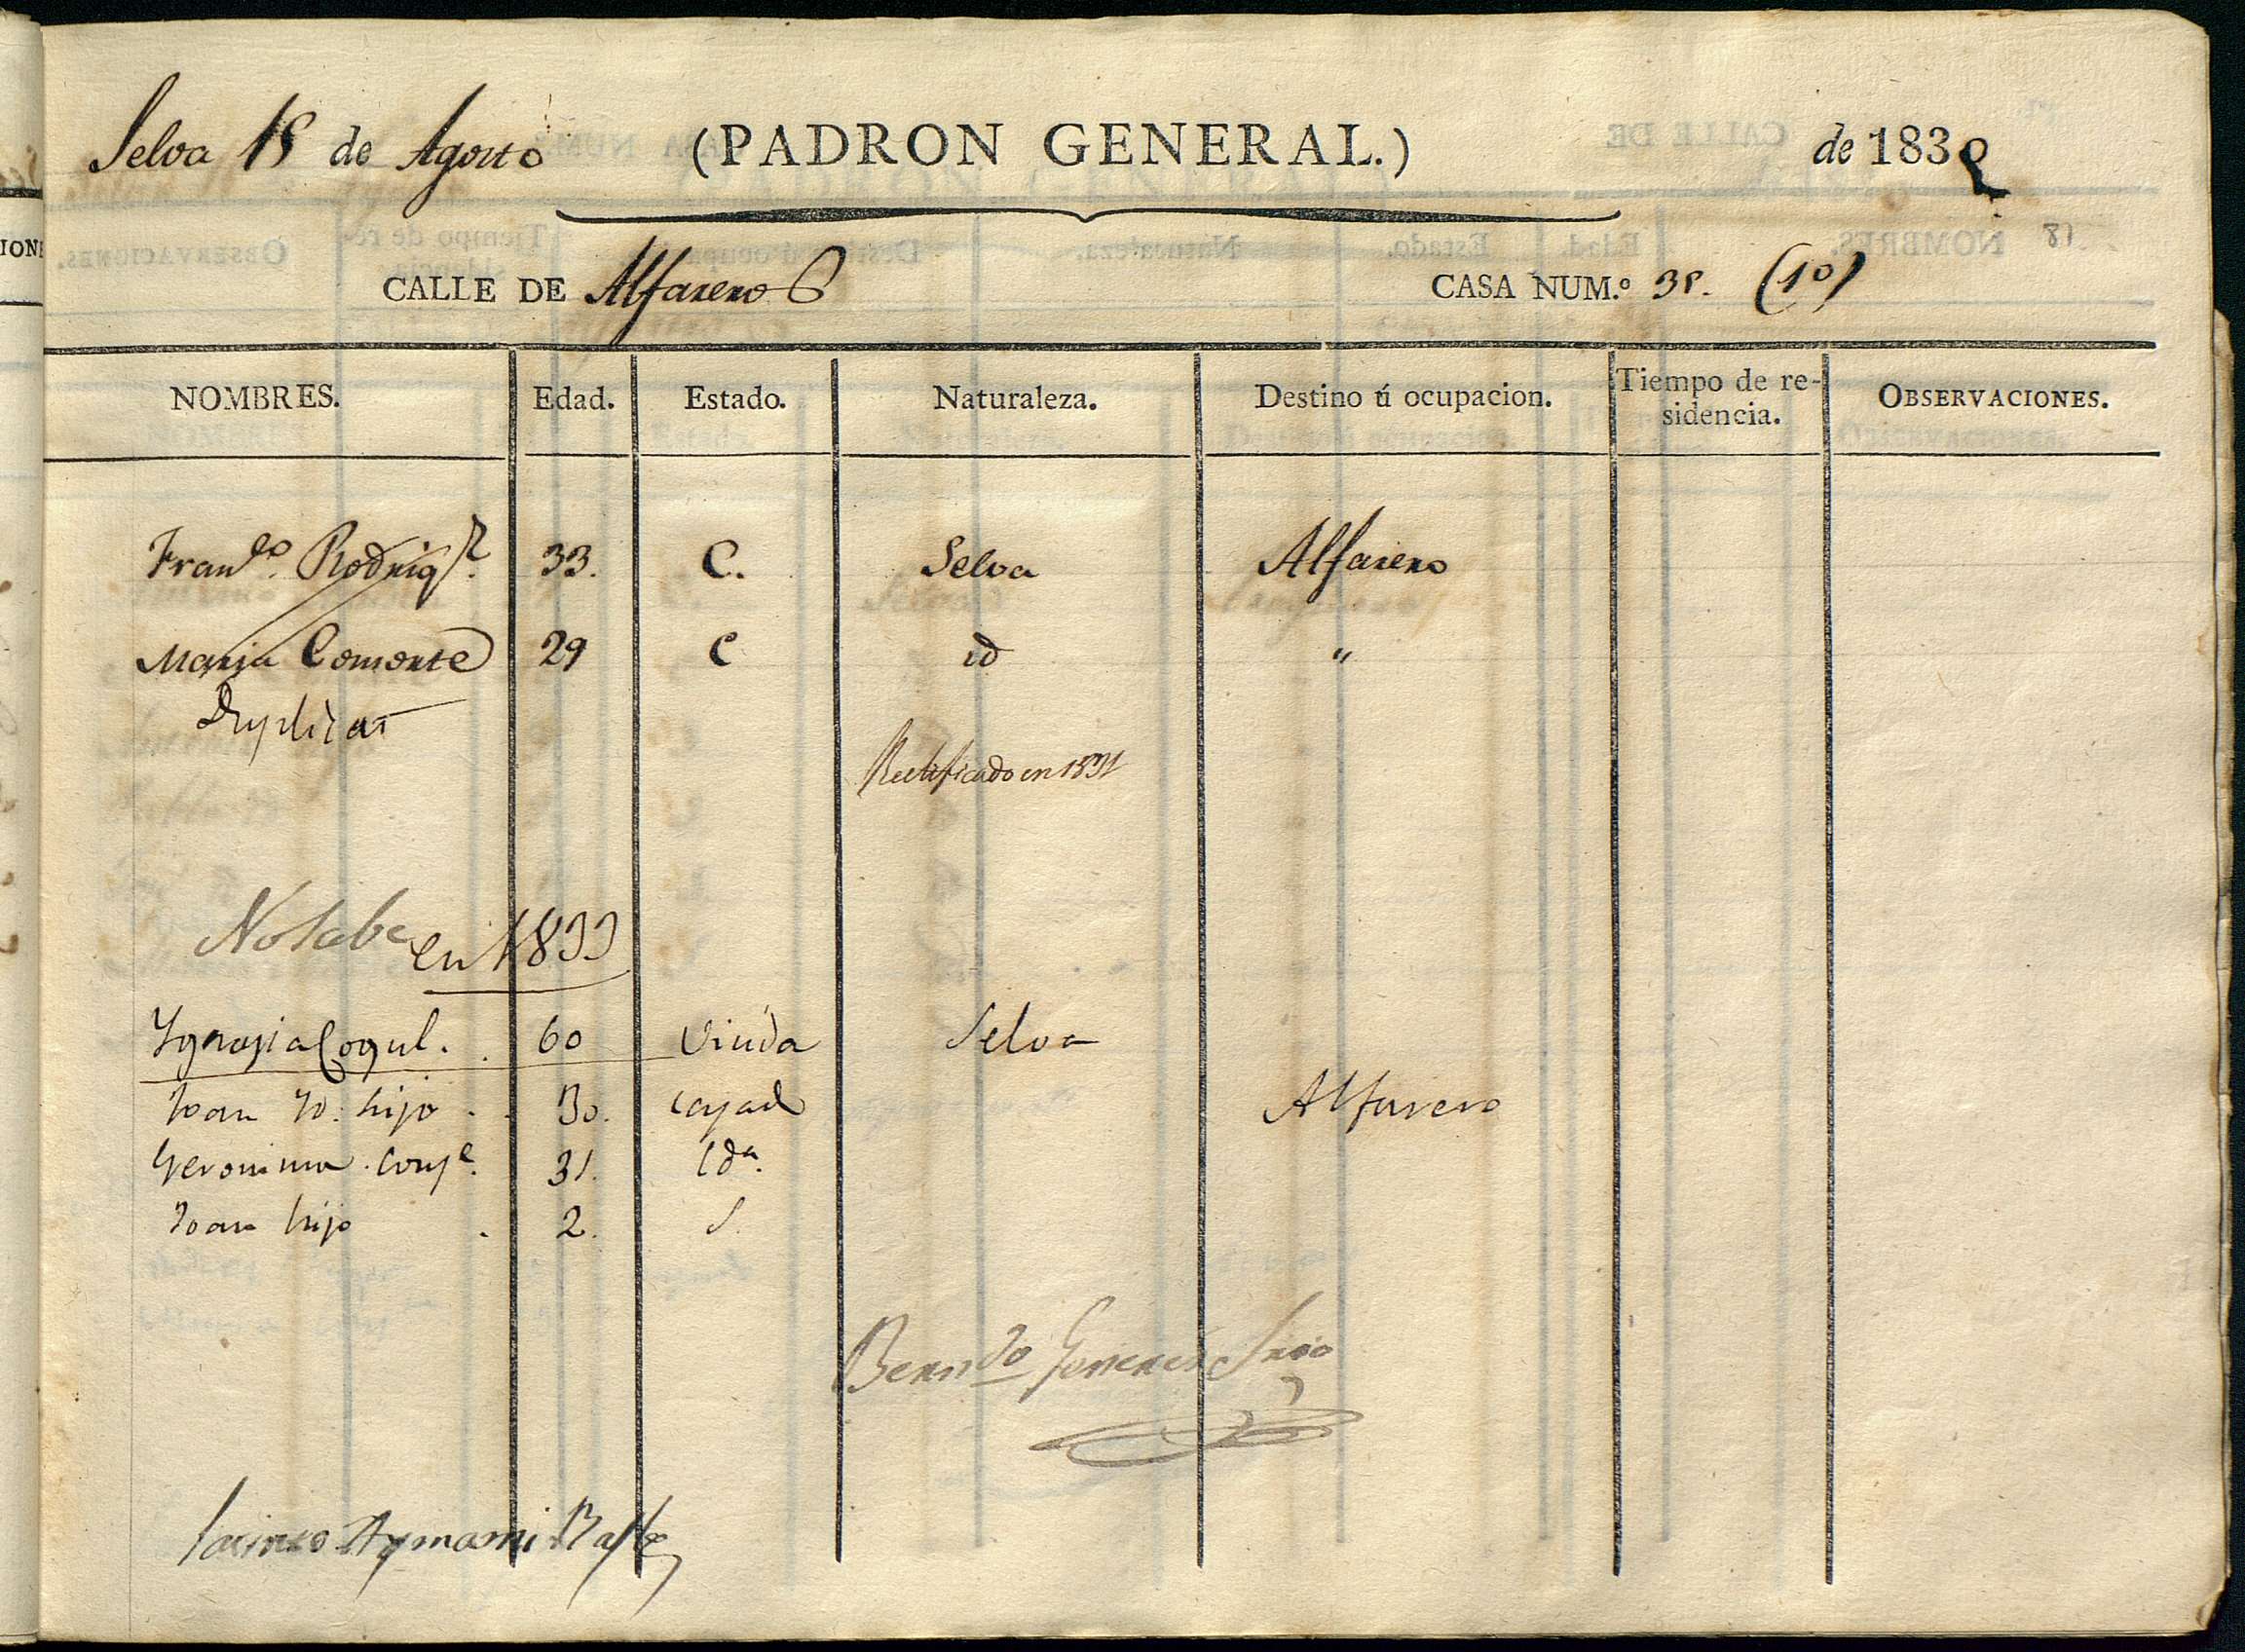 Selva 18 de Agosto (PADRON GENERAL.) de 1832
CALLE DE Alfareros CASA NUM.º 38. (10)
NOMBRES. Edad. Estado. Naturaleza. Destino ú ocupacion. Tiempo de re-sidencia. OBSERVACIONES.
Franco. Rodrigz. 33. C. Selva Alfarero
Maria Comonte 29 C id "
Duplicat
Rectificado en 1831
en 1833
Ygnasia Cogul. 60 Viuda Selva
Joan Yd. hijo 30. casad Alfarero
Geronima. conje. 31. Cda.
Joan hijo 2. S.
Bernardo
Aymami Batle